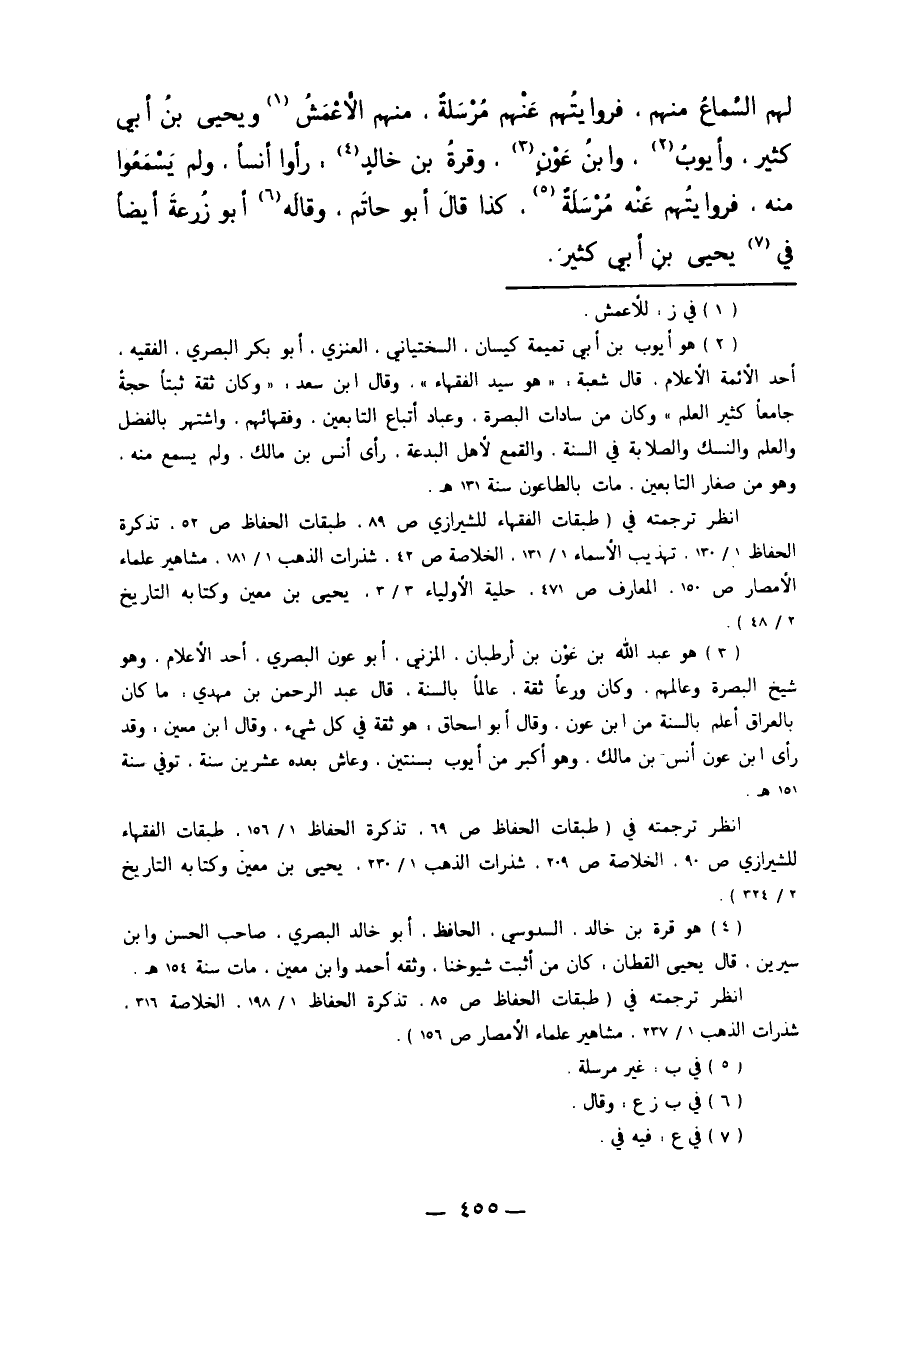 لهم السَّماعُ منهم ، فروايتُهم عَنْهم مُرْسَلةٌ ، منهم الأعْمَشُ (١) ويحيى بنُ أبي
كثير ، وأيوبُ (٢) ، وابنُ عَوْنٍ (٣) ، وقرةُ بن خالدٍ (٤) ، رأوا أنساً ، ولم يَسْمَعُوا
منه ، فروايتُهم عَنْه مُرْسَلَةٌ (٥) ، كذا قالَ أبو حاتَم ، وقالَه (٦) أبو زُرعةَ أيضاً
في (٧) يحيى بنِ أبي كثيرَ .
( ١ ) في ز : للأعمش .
( ٢ ) هو أيوب بن أبي تميمة كيسان ، السختياني ، العنزي ، أبو بكر البصري ، الفقيه ،
أحد الأئمة الأعلام ، قال شعبة : « هو سيد الفقهاء » ، وقال ابن سعد : « وكان ثقة ثبتاً حجةً
جامعاً كثير العلم » وكان من سادات البصرة ، وعباد أتباع التابعين ، وفقهائهم ، واشتهر بالفضل
والعلم والنسك والصلابة في السنة ، والقمع لأهل البدعة ، رأى أنس بن مالك ، ولم يسمع منه ،
وهو من صغار التابعين ، مات بالطاعون سنة ١٣١ هـ .
انظر ترجمته في ( طبقات الفقهاء للشيرازي ص ٨٩ ، طبقات الحفاظ ص ٥٢ ، تذكرة
الحفاظ ١ / ١٣٠ ، تهذيب الأسماء ١ / ١٣١ ، الخلاصة ص ٤٢ ، شذرات الذهب ١ / ١٨١ ، مشاهير علماء
الأمصار ص ١٥٠ ، المعارف ص ٤٧١ ، حلية الأولياء ٣ / ٣ ، يحيى بن معين وكتابه التاريخ
٢ / ٤٨ ) .
( ٣ ) هو عبد الله بن عَوْن بن أرطبان ، المزني ، أبو عون البصري ، أحد الأعلام ، وهو
شيخ البصرة وعالمهم ، وكان ورعاً ثقة ، عالماً بالسنة ، قال عبد الرحمن بن مهدي : ما كان
بالعراق أعلم بالسنة من ابن عون ، وقال أبو اسحاق : هو ثقة في كل شيء ، وقال ابن معين : وقد
رأى ابن عون أنس بن مالك ، وهو أكبر من أيوب بسنتين ، وعاش بعده عشرين سنة ، توفي سنة
١٥١ هـ .
انظر ترجمته في ( طبقات الحفاظ ص ٦٩ ، تذكرة الحفاظ ١ / ١٥٦ ، طبقات الفقهاء
للشيرازي ص ٩٠ ، الخلاصة ص ٢٠٩ ، شذرات الذهب ١ / ٢٣٠ ، يحيى بن معين وكتابه التاريخ
٢ / ٣٢٤ ) .
( ٤ ) هو قرة بن خالد ، السدوسي ، الحافظ ، أبو خالد البصري ، صاحب الحسن وابن
سيرين ، قال يحيى القطان : كان من أثبت شيوخنا ، وثقه أحمد وابن معين ، مات سنة ١٥٤ هـ .
انظر ترجمته في ( طبقات الحفاظ ص ٨٥ ، تذكرة الحفاظ ١ / ١٩٨ ، الخلاصة ٣١٦ ،
شذرات الذهب ١ / ٢٣٧ ، مشاهير علماء الأمصار ص ١٥٦ ) .
( ٥ ) في ب : غير مرسلة .
( ٦ ) في ب ز ع : وقال .
( ٧ ) في ع : فيه في .
— ٤٥٥ —